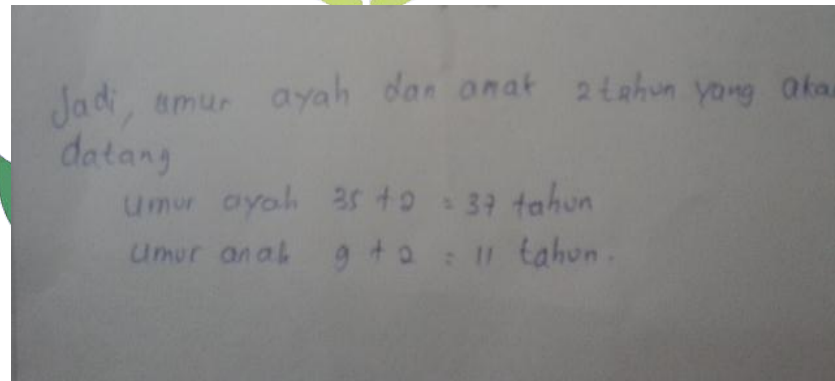 Jadi, umur ayah dan anak 2 tahun yang aka
datang
umur ayah 35 + 2 = 37 tahun
umur anak 9 + 2 = 11 tahun.